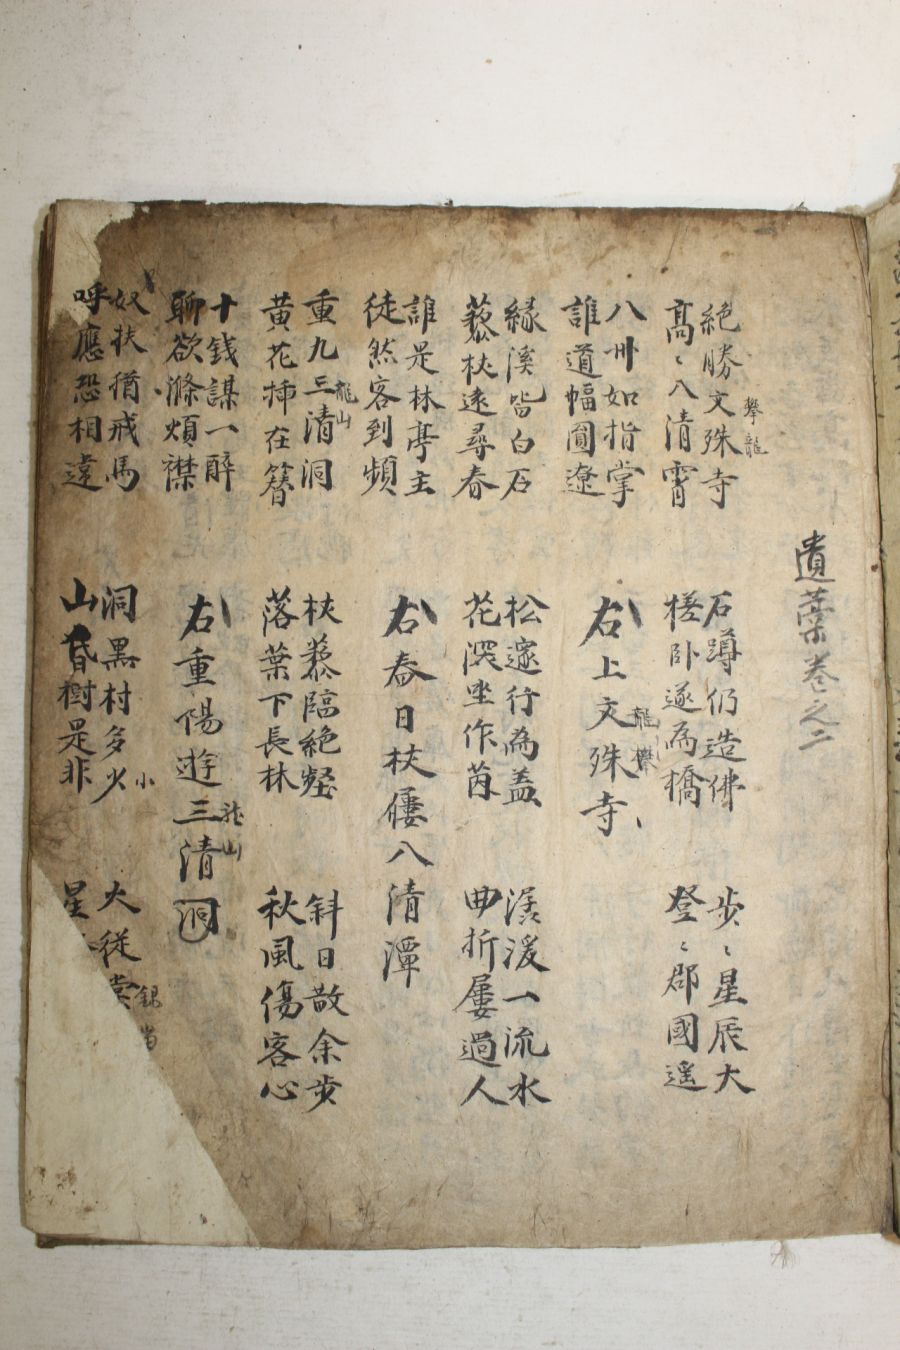 遺藁卷之二
絶勝文殊寺
攀龍
高〻八清霄
石蹲仍造佛
槎卧遂為橋
步〻星辰大
登〻郡國遥
八卅如指掌
誰道幅圓遼
右上文殊寺
龍
緣溪皆白石
藜杖遠尋春
松邃行為盖
花深坐作茵
潺湲一流水
曲折屢過人
誰是林亭主
徒然客到頻
右春日杖屨八清潭
重九三清洞
龍山
黄花揷在簪
杖藜臨絶壑
落葉下長林
斜日散余步
秋風傷客心
十錢謀一醉
聊欲滌煩襟
右重陽遊三清洞
龍山
奴扶猶戒馬
呼應恐相違
洞黑村多火
小
山昏樹是非
大從棠
銀當
星